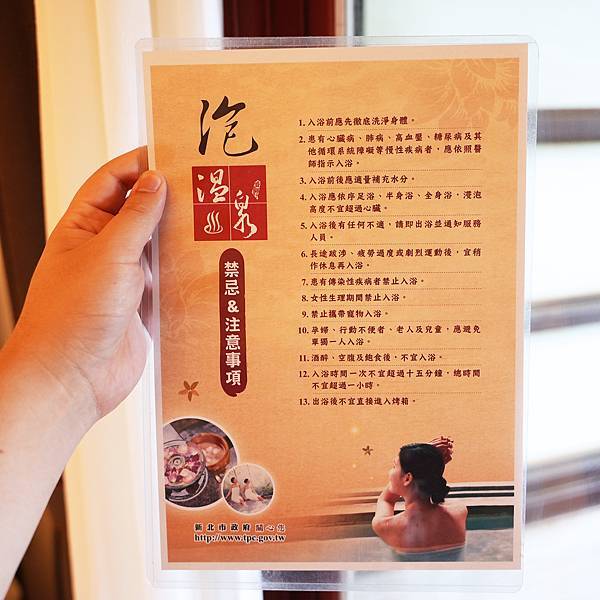 泡
溫泉
禁忌&注意事項
1. 入浴前應先徹底洗淨身體。
2. 患有心臟病、肺病、高血壓、糖尿病及其
他循環系統障礙等慢性疾病者，應依照醫
師指示入浴。
3. 入浴前後應適量補充水分。
4. 入浴應依序足浴、半身浴、全身浴，浸泡
高度不宜超過心臟。
5. 入浴後有任何不適，請即出浴並通知服務
人員。
6. 長途跋涉、疲勞過度或劇烈運動後，宜稍
作休息再入浴。
7. 患有傳染性疾病者禁止入浴。
8. 女性生理期間禁止入浴。
9. 禁止攜帶寵物入浴。
10. 孕婦、行動不便者、老人及兒童，應避免
單獨一人入浴。
11. 酒醉、空腹及飽食後，不宜入浴。
12. 入浴時間一次不宜超過十五分鐘，總時間
不宜超過一小時。
13. 出浴後不宜直接進入烤箱。
新北市政府 關心您
http://www.tpc.gov.tw